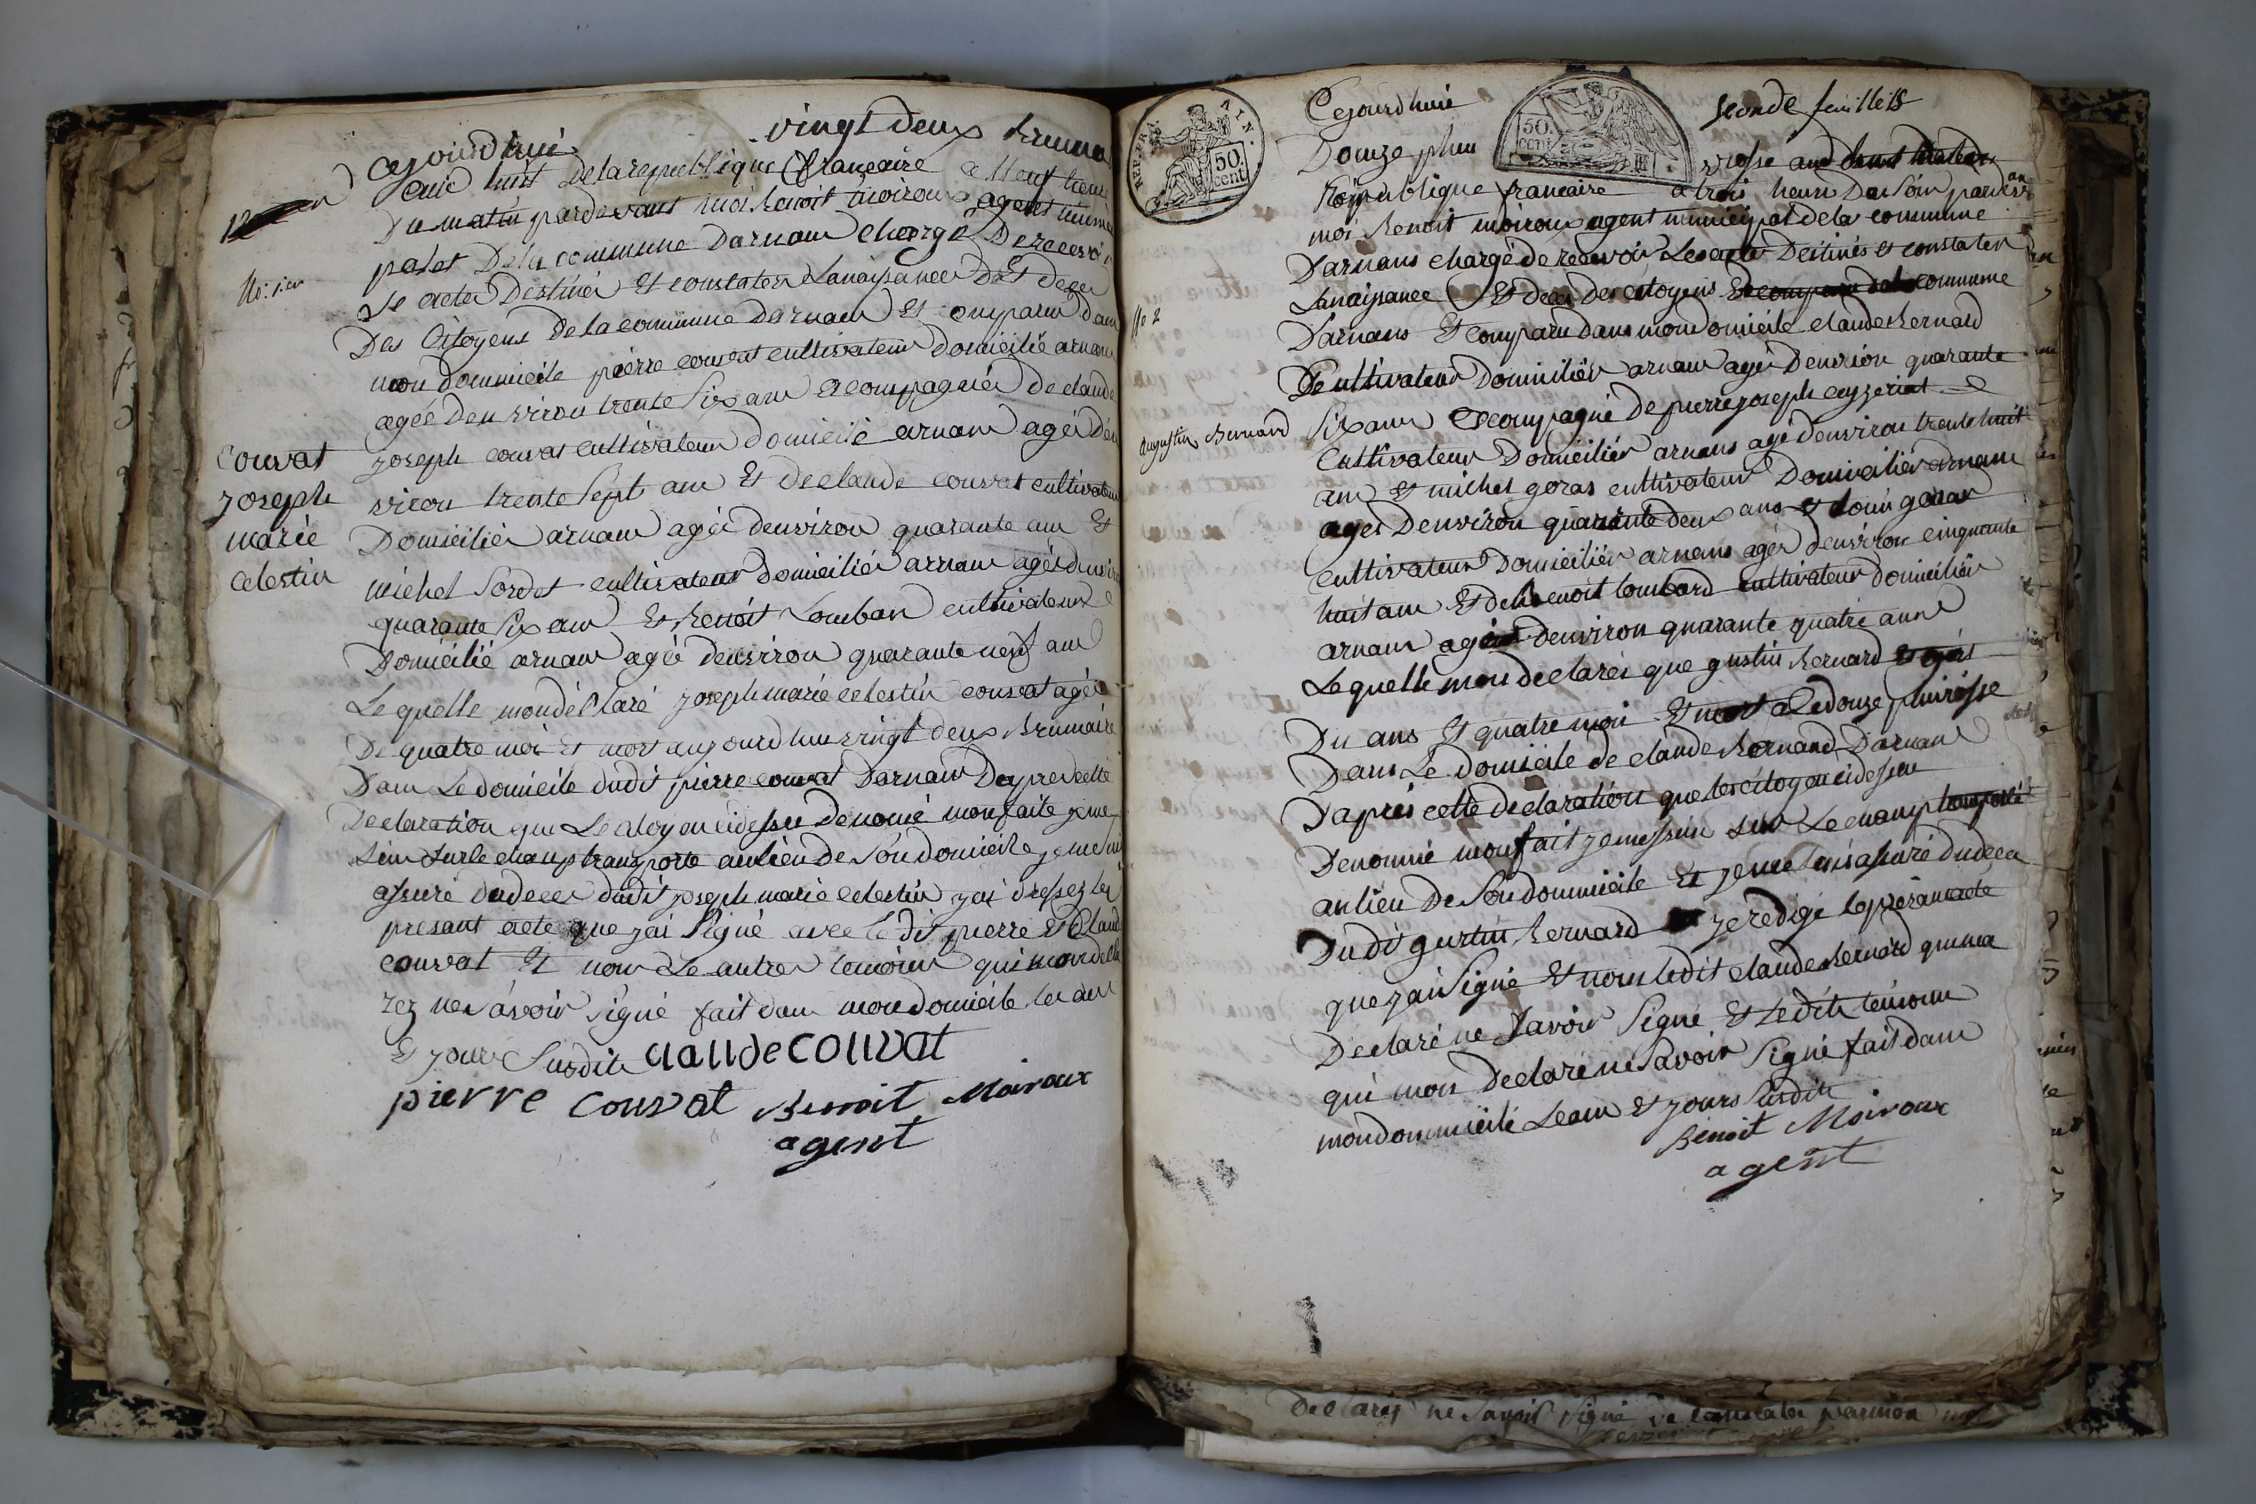 cejourdhui vingt deux bruma
huit dela republique francaire a neuf heure
Du matin pardevant moi benoit moiroux agent munici
palet Dela commune Darnam chargé De recevoi
Le acte Destiner Et constater Lanaisance Et deces
Des Citoyens de la commune darnam Et comparu dam
mon dommicile pierre couvat cultivateur domicilié arnam
agée Denviron trente Six am acompagnée de claude
joseph couvat cultivateur domicilié arnam agée den
viron trente Sept am Et de claude couvat cultivateur
Domicilié arnam agée denviron quarante am Et
michel Sordet cultivateur domicilié arnam agée denviro
quarante Six am Et benoit Lombar cultivateur
Domicilié arnam agée denviron quarante neuf am
Le quelle mon déClaré joseph marie celestin couvat agée
De quatre moi Et mort aujourdhui vingt deux Brumaire
Dam Le domicile dudit pierre couvat Darnam Dapres cette
Declaration que Le citoyen cidessu denomé mon faite je me
Suis Sur le champ transporte au lieu de Son domicile je me sui
assuré du deces dudit joseph marie celestin jai dressez le
presant acte que jai Signé avec le dit pierre Et Claud
couvat Et non Le autre temoins qui mon décla
rez ne Savoir Signé fait dam mon domicile le am
Et jour Susdit claude couvat
pierre couvat Benoit Moiroux
agent
No 1.er
Couvat
joseph
marie
celestin
REP. FRA. AIN.
50.
cent.
50.
cent
Cejourdhui seconde feuillets
Douze pluv viosse
République francaire a trois heure Du Soir pardevan
moi Benoit moiroux agent municipal de la commune
Darnans chargé de recevoir Les acte Destinés Et constater
Lanaisance Et deces des citoyens commune
Darnans Et comparu dans mon domicile claude Bernard
Cultivateur Domicilié arnam agée Denviron quarante
Six am acompagné de pierre joseph eyzeriat
Cultivateur Domicilié arnans agé denviron trente huit
am Et michel goras cultivateur Domicilié arnam
ages Denviron quarante deux ans Et louis goras
cultivateur Domicilié arnans agés denviron cinquante
huit am Et de Benoit lombard cultivateur domicilié
arnam agée denviron quarante quatre ans
Le quelle mon declarés que gustin Bernard Et agés
Du ans Et quatre moi Et mort a Le douze pluviosse
Dans Le domicile de claude Bernard Darnam
Dapres cette declaration que les citoyen cidessu
Denommé mon fait je me suis sur Le champ transporté
au lieu De Son dommicile Et je me suis assuré du deces
Dudit gustin Bernard je redigé le présan acte
que jai Signé Et non ledit claude Bernard qui ma
Declaré ne Savoir Signé Et Ledit temoin
qui mon Declaré ne Savoir Signé fait dam
mon dommicile Le am Et jours Susdit
Benoit Moiroux
agent
No 2
augustin Bernard
Declarez ne Savoir Signé